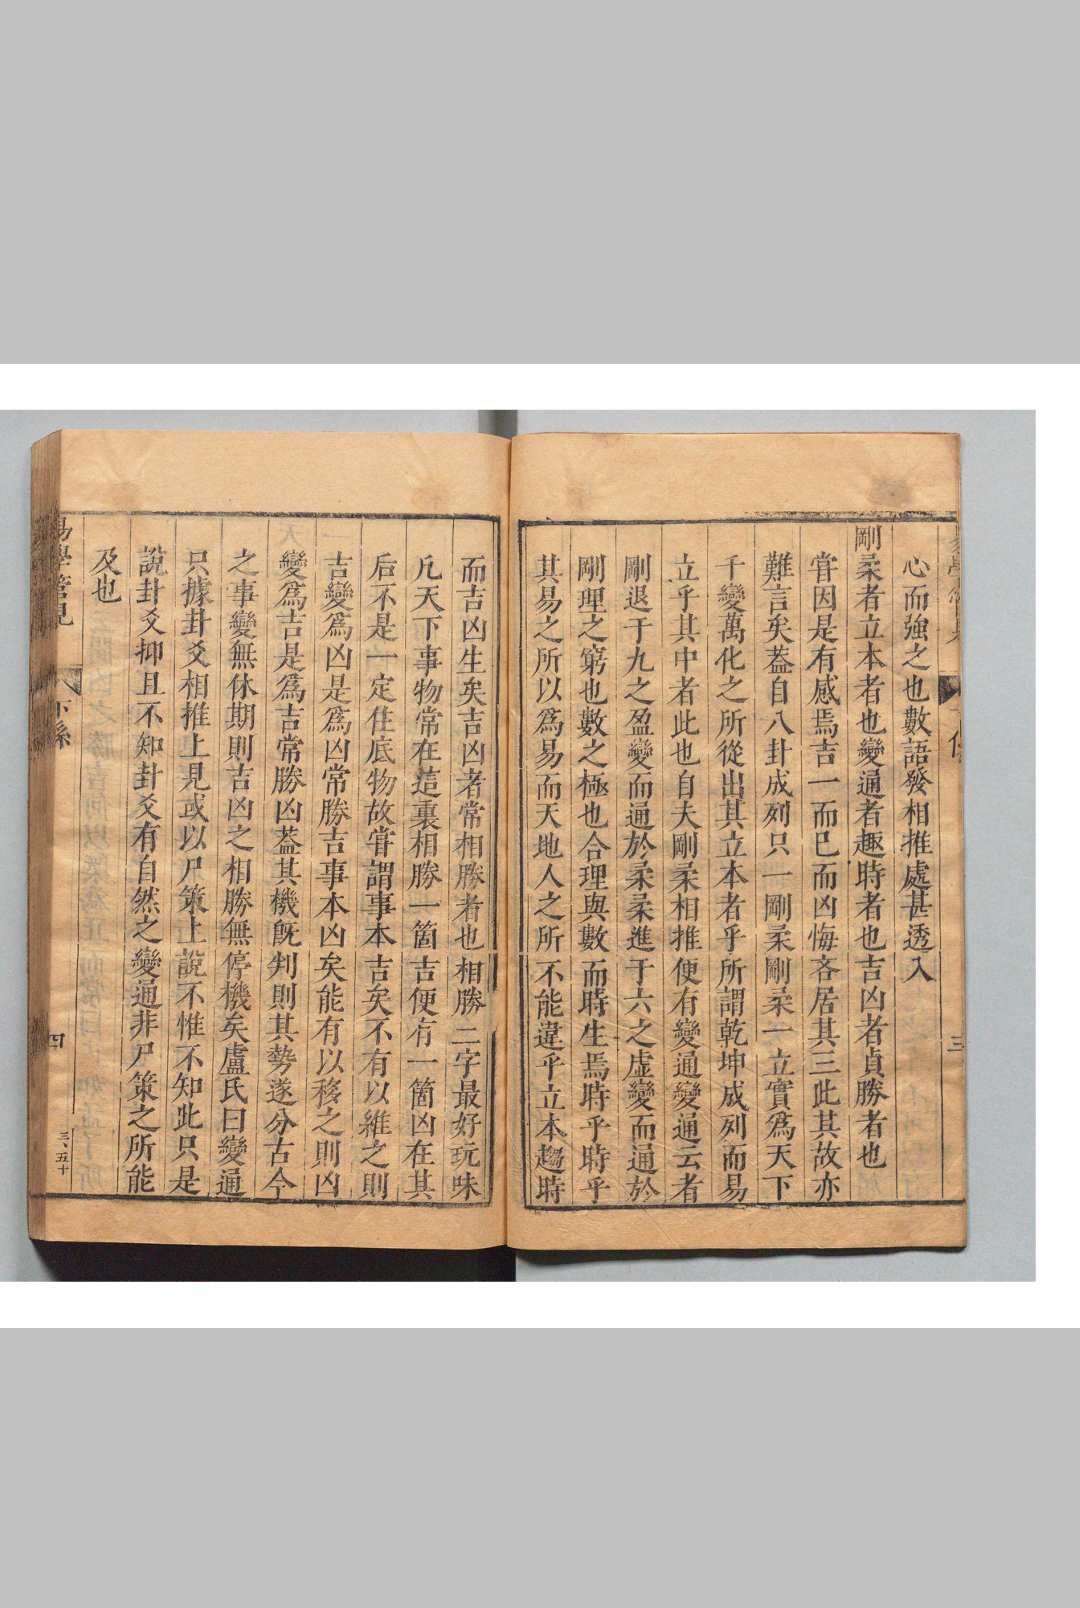 心而強之也數語發相推處甚透入
剛柔者立本者也變通者趣時者也吉凶者貞勝者也
嘗因是有感焉吉一而已而凶悔吝居其三此其故亦
難言矣葢自八卦成列只一剛柔剛柔一立實爲天下
千變萬化之所從出其立本者乎所謂乾坤成列而易
立乎其中者此也自夫剛柔相推便有變通變通云者
剛退于九之盈變而通於柔柔進于六之虛變而通於
剛理之窮也數之極也合理與數而時生焉時乎時乎
其易之所以爲易而天地人之所不能違乎立本趨時
而吉凶生矣吉凶者常相勝者也相勝二字最好玩味
凢天下事物常在這裏相勝一箇吉便有一箇凶在其
后不是一定住底物故嘗謂事本吉矣不有以維之則
吉變爲凶是爲凶常勝吉事本凶矣能有以移之則凶
變爲吉是爲吉常勝凶葢其機旣判則其勢遂分古今
之事變無休期則吉凶之相勝無停機矣盧氏曰變通
只據卦爻相推上見或以尸策上說不惟不知此只是
說卦爻抑且不知卦爻有自然之變通非尸策之所能
及也
易學管見
下係
四
三、五十